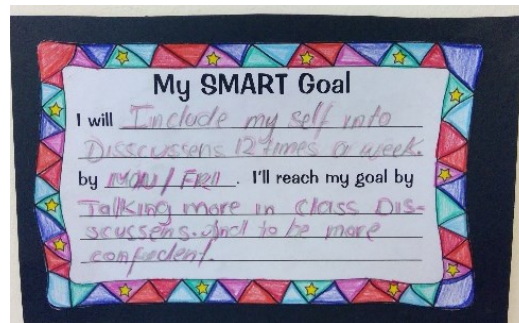 My SMART Goal
I will Include my self into
Disscussens 12 times a week.
by MON / FRII . I'll reach my goal by
Talking more in Class Dis-
scussens. And to be more
confedent.